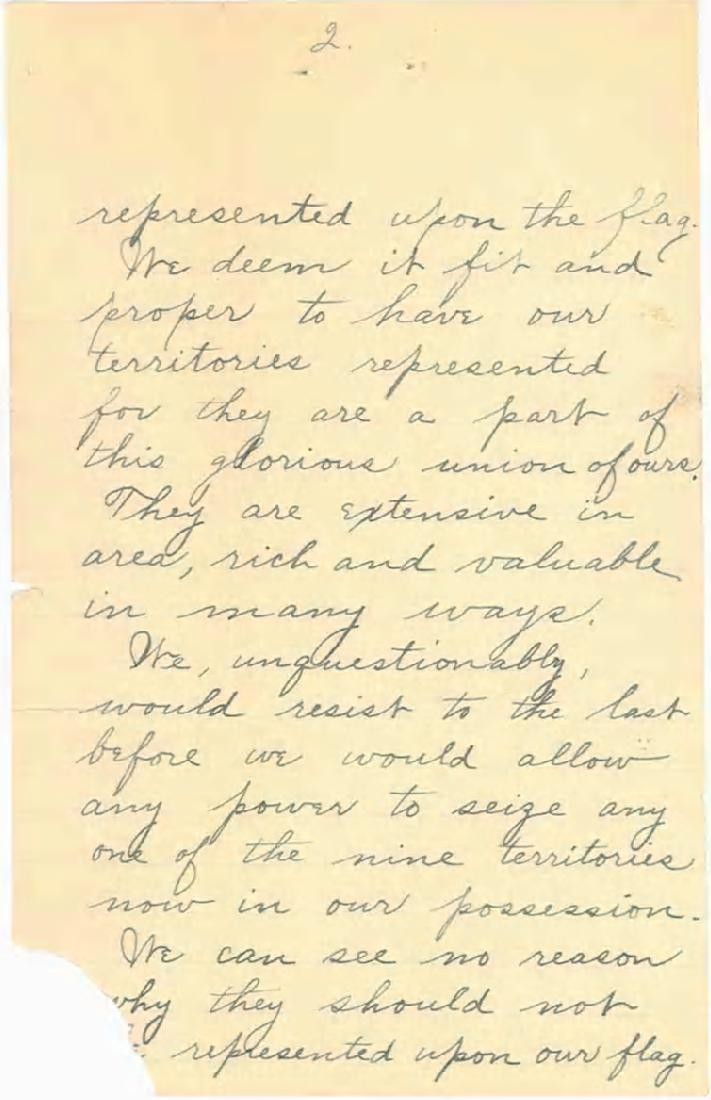 2.
represented upon the flag.
We deem it fit and
proper to have our
territories represented
for they are a part of
this glorious union of ours.
They are extensive in
area, rich and valuable
in many ways.
We, unquestionably,
would resist to the last
before we would allow
any power to seize any
one of the nine territories
now in our possession.
We can see no reason
why they should not
represented upon our flag.